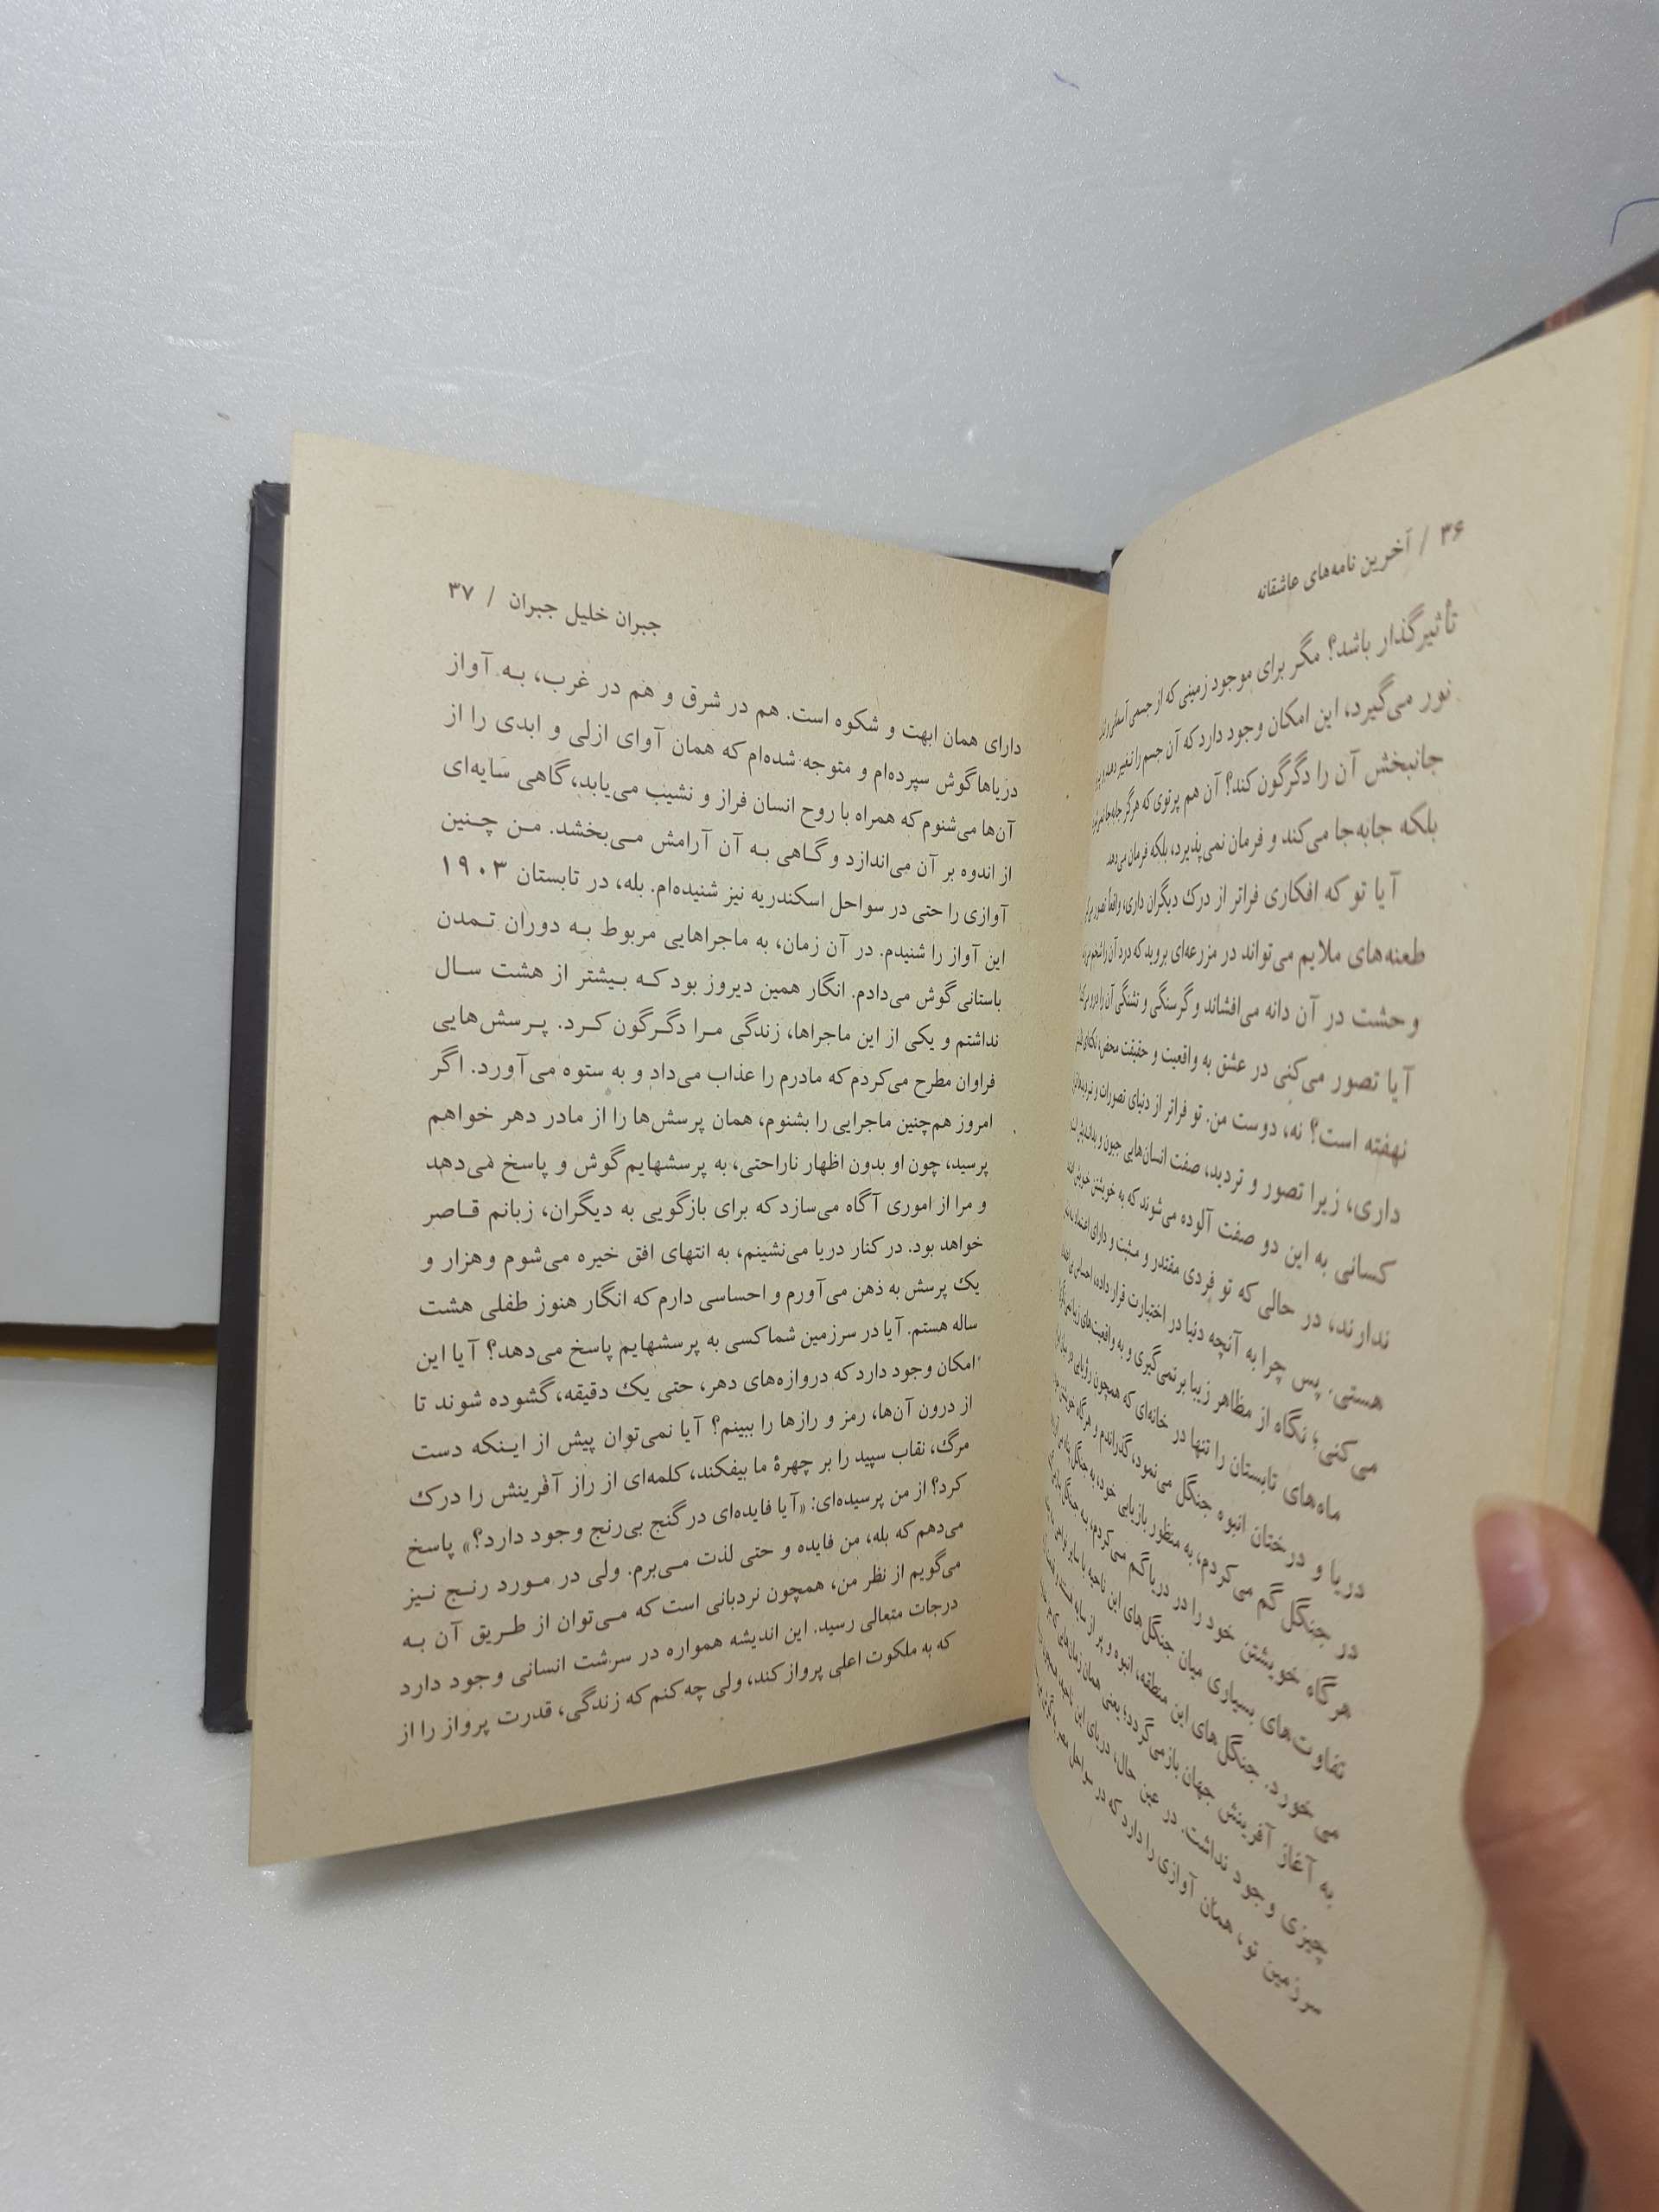 ۳۶ / آخرین نامه‌های عاشقانه
تأثیرگذار باشد؟ مگر برای موجود زمینی که از جسمی آسمانی
نور می‌گیرد، این امکان وجود دارد که آن جسم را تغییر دهد و
جانبخش آن را دگرگون کند؟ آن هم پرتوی که هرگز جابه‌جا
بلکه جابه‌جا می‌کند و فرمان نمی‌پذیرد، بلکه فرمان می‌دهد.
آیا تو که افکاری فراتر از درک دیگران داری، واقعاً تصور
طعنه‌های ملایم می‌تواند در مزرعه‌ای بروید که درد آن را شخم
وحشت در آن دانه می‌افشاند و گرسنگی و تشنگی آن را درو
آیا تصور می‌کنی در عشق به واقعیت و حقیقت محض،
نهفته است؟ نه، دوست من. تو فراتر از دنیای تصورات و
داری، زیرا تصور و تردید، صفت انسان‌هایی جبون و
کسانی به این دو صفت آلوده می‌شوند که به خویشتن خویش
ندارند، در حالی که تو فردی مقتدر و مثبت و دارای اعتماد
هستی. پس چرا به آنچه دنیا در اختیارت قرار داده، احساس
می‌کنی؛ نگاه از مظاهر زیبا برنمی‌گیری و به واقعیت‌های
ماه‌های تابستان را تنها در خانه‌ای که همچون رؤیایی در
دریا و درختان انبوه جنگل می‌نمود، گذراندم و هرگاه خویش
در جنگل گم می‌کردم، به منظور بازیابی خود، به جنگل
هرگاه خویشتن خود را در دریا گم می‌کردم، به جنگل
تفاوت‌های بسیاری میان جنگل‌های این ناحیه با سایر
می‌خورد. جنگل‌های این منطقه، انبوه و پر از سایه هستند
به آغاز آفرینش جهان بازمی‌گردد؛ یعنی همان زمان‌هایی که
چیزی وجود نداشت. در عین حال، دریای این
سرزمین تو، همان آوازی را دارد که در سواحل
جبران خلیل جبران / ۳۷
دارای همان ابهت و شکوه است. هم در شرق و هم در غرب، به آواز
دریاها گوش سپرده‌ام و متوجه شده‌ام که همان آوای ازلی و ابدی را از
آن‌ها می‌شنوم که همراه با روح انسان فراز و نشیب می‌یابد، گاهی سایه‌ای
از اندوه بر آن می‌اندازد و گاهی به آن آرامش می‌بخشد. من چنین
آوازی را حتی در سواحل اسکندریه نیز شنیده‌ام. بله، در تابستان ۱۹۰۳
این آواز را شنیدم. در آن زمان، به ماجراهایی مربوط به دوران تمدن
باستانی گوش می‌دادم. انگار همین دیروز بود که بیشتر از هشت سال
نداشتم و یکی از این ماجراها، زندگی مرا دگرگون کرد. پرسش‌هایی
فراوان مطرح می‌کردم که مادرم را عذاب می‌داد و به ستوه می‌آورد. اگر
امروز هم‌چنین ماجرایی را بشنوم، همان پرسش‌ها را از مادر دهر خواهم
پرسید، چون او بدون اظهار ناراحتی، به پرسشهایم گوش و پاسخ می‌دهد
و مرا از اموری آگاه می‌سازد که برای بازگویی به دیگران، زبانم قاصر
خواهد بود. در کنار دریا می‌نشینم، به انتهای افق خیره می‌شوم و هزار و
یک پرسش به ذهن می‌آورم و احساسی دارم که انگار هنوز طفلی هشت
ساله هستم. آیا در سرزمین شما کسی به پرسشهایم پاسخ می‌دهد؟ آیا این
امکان وجود دارد که دروازه‌های دهر، حتی یک دقیقه، گشوده شوند تا
از درون آن‌ها، رمز و رازها را ببینم؟ آیا نمی‌توان پیش از اینکه دست
مرگ، نقاب سپید را بر چهرهٔ ما بیفکند، کلمه‌ای از راز آفرینش را درک
کرد؟ از من پرسیده‌ای: «آیا فایده‌ای در گنج بی‌رنج وجود دارد؟» پاسخ
می‌دهم که بله، من فایده و حتی لذت می‌برم. ولی در مورد رنج نیز
می‌گویم از نظر من، همچون نردبانی است که می‌توان از طریق آن به
درجات متعالی رسید. این اندیشه همواره در سرشت انسانی وجود دارد
که به ملکوت اعلی پرواز کند، ولی چه کنم که زندگی، قدرت پرواز را از